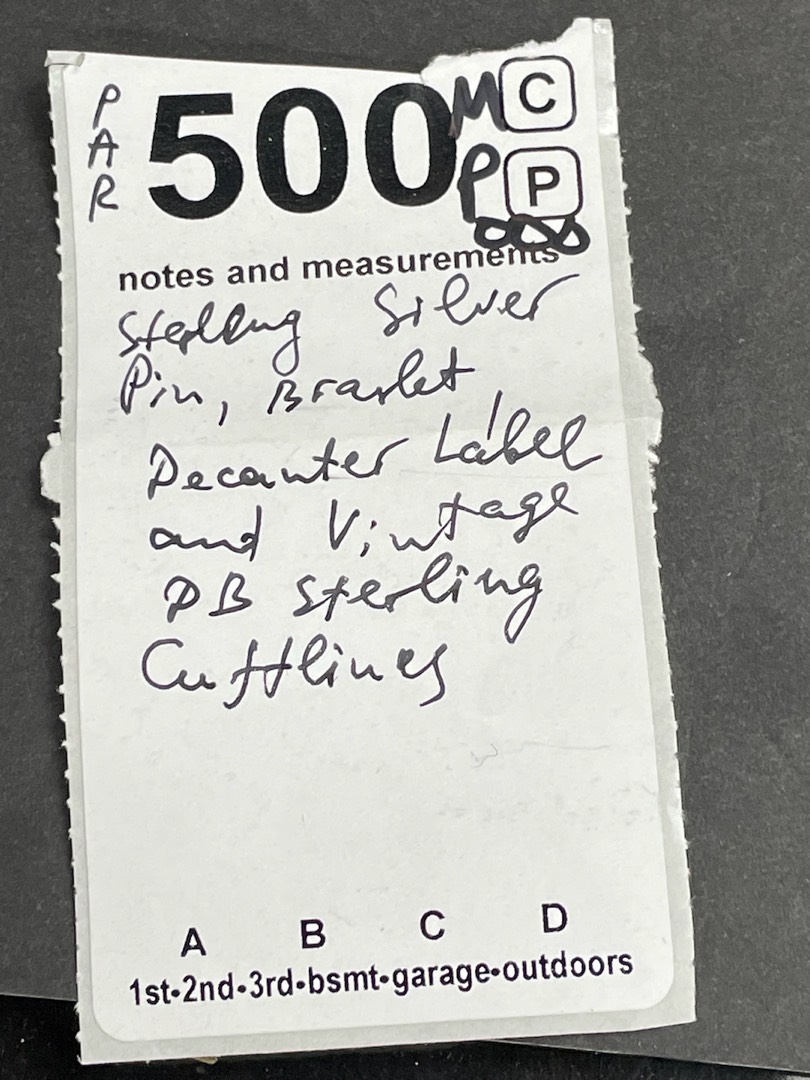 PAR 500 M C
P P
notes and measurements
Sterling Silver
Pin, Braslet,
Decanter Label
and Vintage
PB Sterling
Cufflincs
A B C D
1st•2nd•3rd•bsmt•garage•outdoors